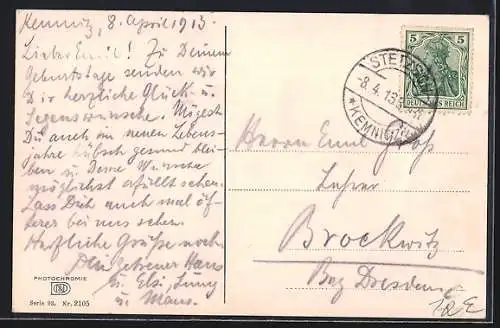 Kemnitz, 8. April 1913.
Lieber Emil! Zu Deinem
Geburtstage senden wir
Dir herzliche Glück- u.
Segenswünsche. Mögest
Du auch im neuen Lebens-
jahre hübsch gesund blei-
ben u. Deine Wünsche
möglichst erfüllt sehen.
Lass Dich auch mal öf-
terer bei uns sehen.
Herzliche Grüße noch.
Dein getreuer Hans
u. Elsi,
u. Mama.
PHOTOCHROMIE
Serie 92. Nr. 2105
5 5
DEUTSCHES REICH
STETZSCH
-8.4.13
*KEMNITZ
Herrn Emil
Lehrer
Brockwitz
Bez. Dresden